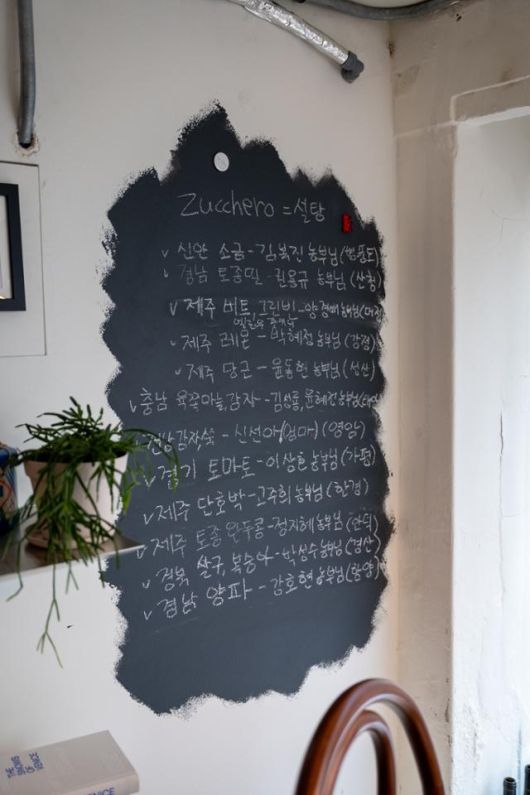 Zucchero = 설탕
v 신안 소금 - 김복진 농부님
v 경남 토종밀 - 권용규 농부님 (산청)
v 제주 비트, 그린빈 - 양경배 농부님
v 제주 레몬 - 박혜정 농부님 (강정)
v 제주 당근 - 윤동현 농부님 (성산)
v 충남 육쪽마늘, 감자 - 김성룡, 윤혜진 농부님
- 신선아 (엄마) (영양)
v 경기 토마토 - 이상호 농부님 (가평)
v 제주 단호박 - 고주희 농부님 (한경)
v 제주 토종 완두콩 - 정지혜 농부님
v 경북 살구, 복숭아 - 박성수 농부님 (경산)
v 경남 양파 - 강호현 농부님 (함양)